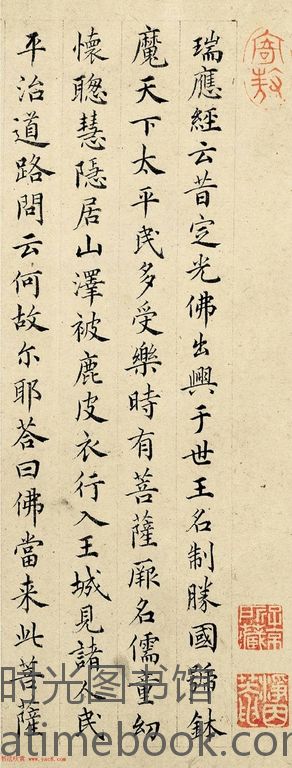 瑞應經云昔定光佛出興于世王名制勝國號鉢
魔天下太平民多受樂時有菩薩厥名儒童幼
懷聰慧隱居山澤被鹿皮衣行入王城見諸人民
平治道路問云何故尔耶荅曰佛當来此菩薩
时光图书馆
atimebook.com